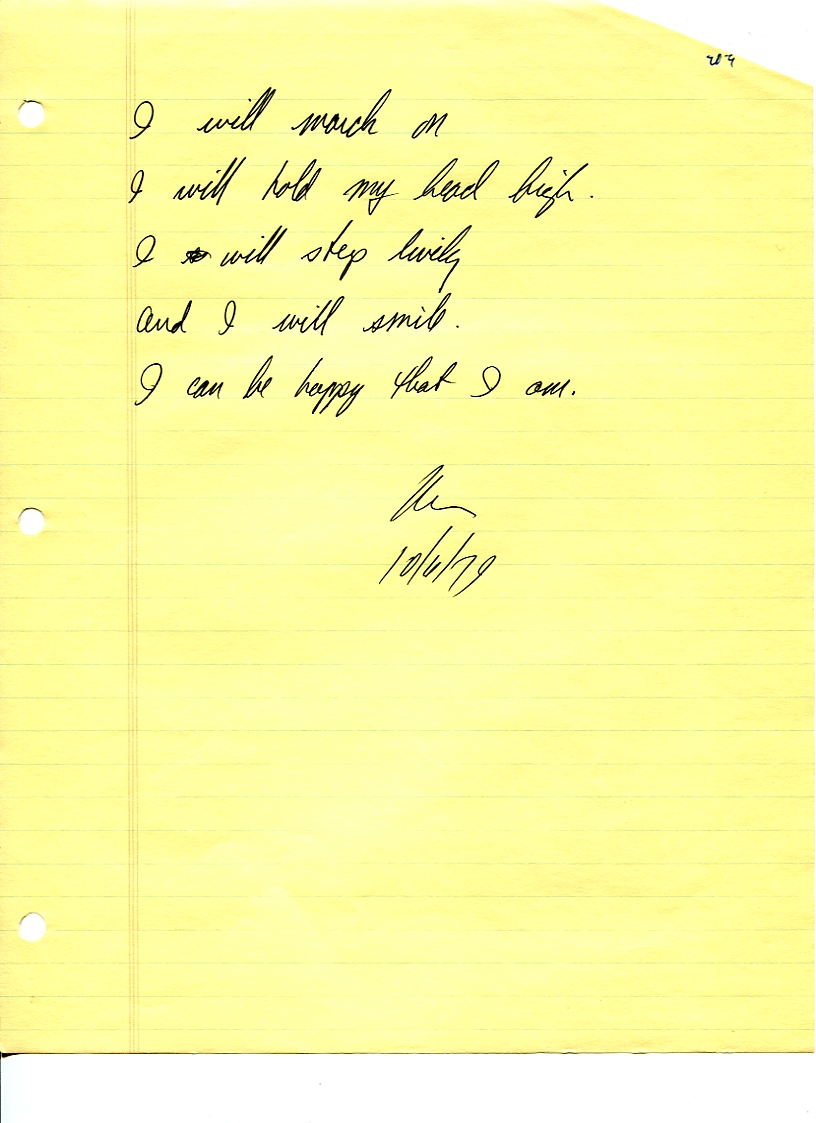 I will march on
I will hold my head high.
I will step lively
and I will smile.
I can be happy that I am.
10/6/79